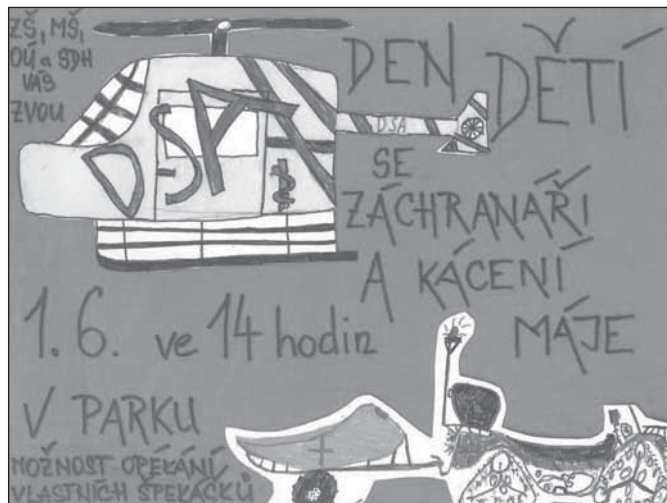 ZŠ, MŠ,
OÚ a SDH
VÁS
ZVOU
DEN
DĚTÍ
SE
ZÁCHRANÁŘI
A KÁCENÍ
MÁJE
DSA
DSA
1.6. ve 14 hodin
V PARKU
MOŽNOST OPÉKÁNÍ
VLASTNÍCH ŠPEKÁČKŮ